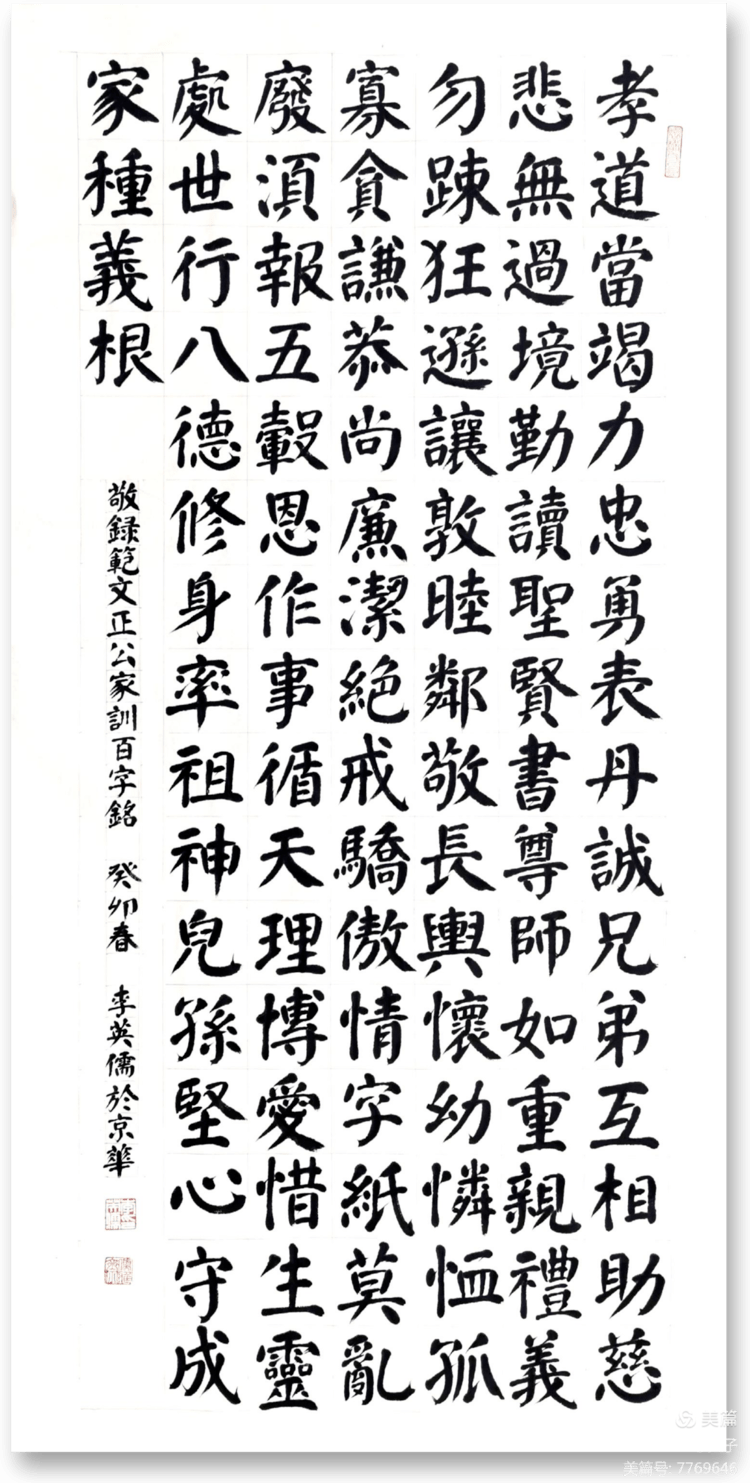 孝道當竭力忠勇表丹誠兄弟互相助慈
悲無過境勤讀聖賢書尊師如重親禮義
勿踈狂遜讓敦睦鄰敬長輿懷幼憐恤孤
寡貪謙恭尚廉潔絕戒驕傲情字紙莫亂
廢須報五轂恩作事循天理博愛惜生靈
處世行八德修身率祖神兒孫堅心守成
家種義根
敬録範文正公家訓百字銘 癸卯春 李英儒於京華
美篇
美篇号: 7769646